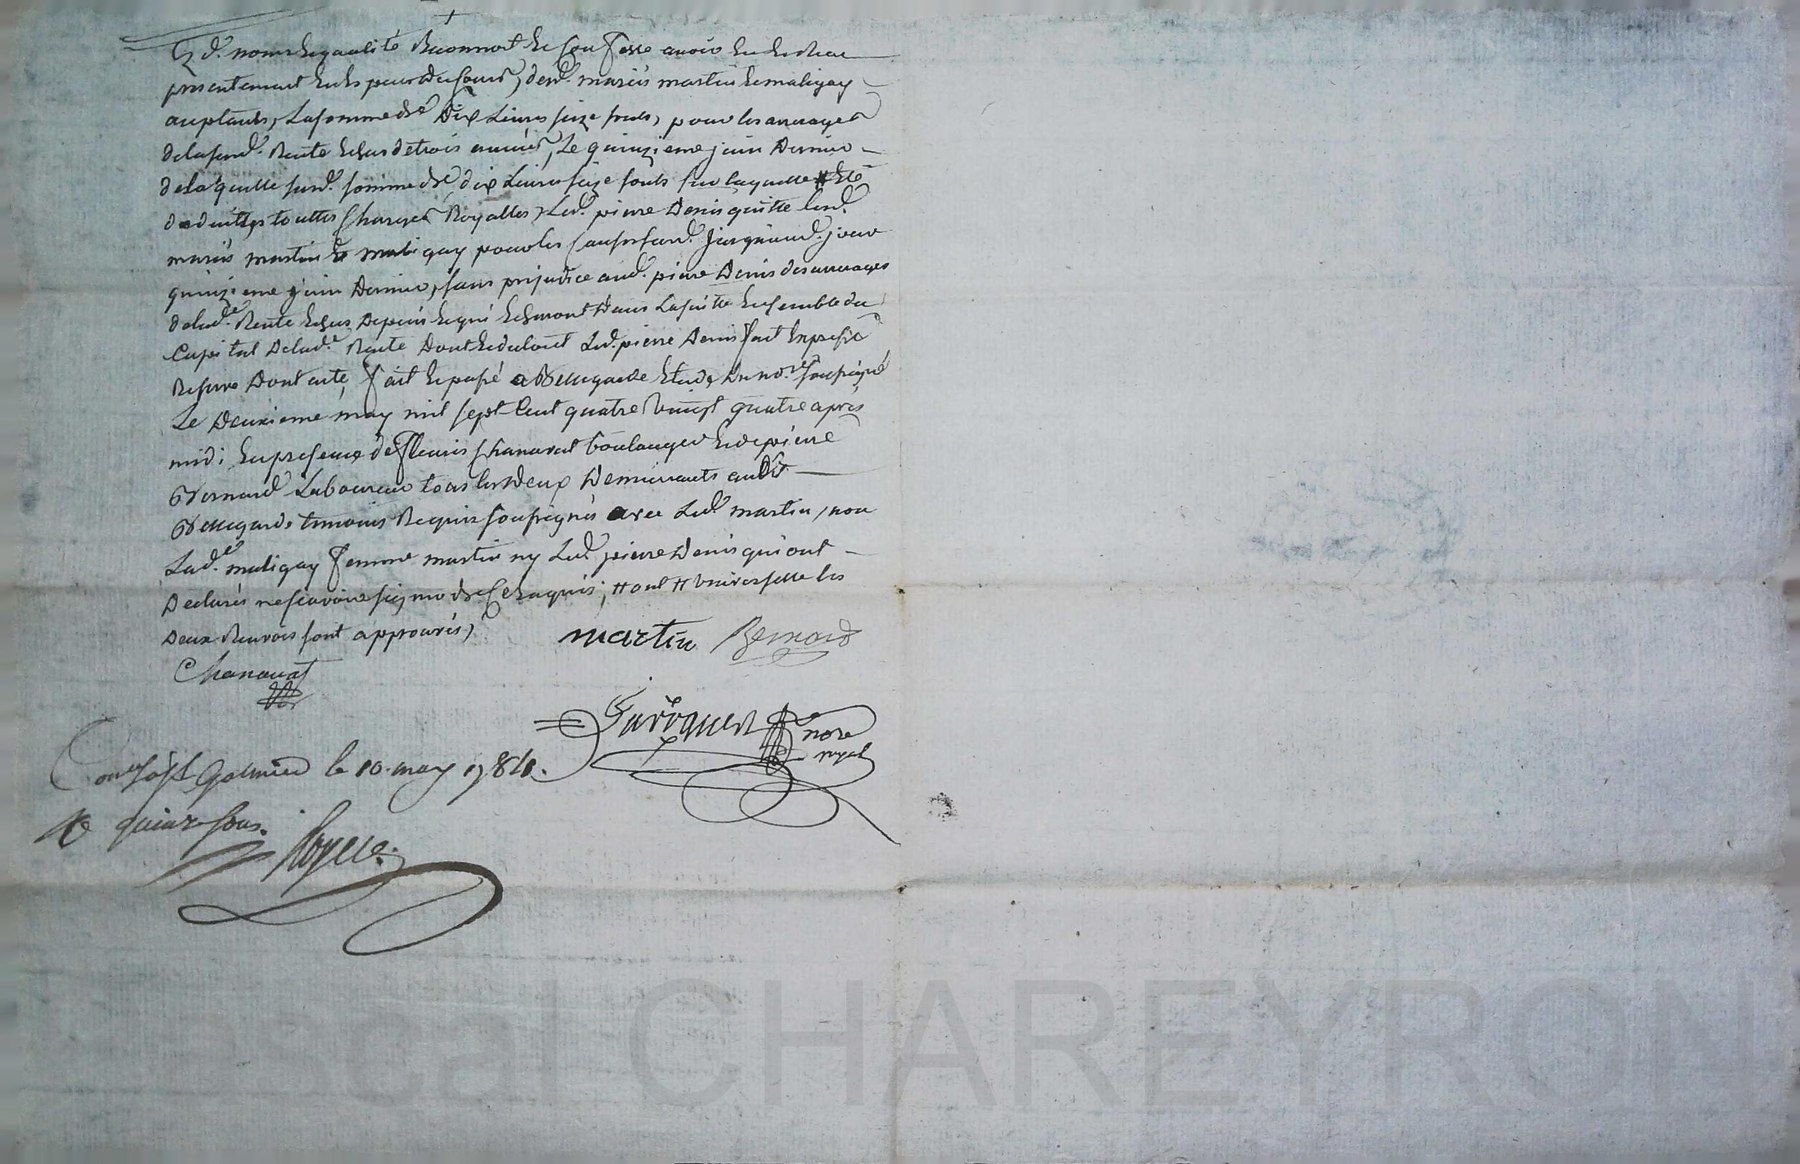 Esd. noms et qualité Reconnoit et Confesse avoir eu et Receu
presentement des maries martin et matigay
acceptants, La somme de Dix Livres seize sols, pour les arrerages
de lasusd. Rente Echus de trois années, Le quinzieme juin Dernier
de laquelle susd. somme de dix Livres seize souls sur laquelle # Eté
deduittes touttes Charges Royalles, Led. pierre Denis quitte lesd.
mariés martin Et matigay pour les Causes susd. jusqu'aud. jour
quinzieme juin Dernier, sans prejudice aud. pierre Denis des arrerages
delad.e Rente Echus Depuis et qui Echeront Dans La suitte Ensemble du
Capital Delad.e Rente Dont et du tout Led. pierre Denis fait Expresse
Reserve Dont acte, fait Et passé a Bellegarde Etude Du no.re soussigné
Le Deuxieme may mil sept Cent quatre Vingt quatre apres
midi, En presence de fleuris Chanavat boulanger Et de pierre
Bernard Laboureur tous les Deux Demeurants audit
Bellegarde temoins Requis soussignés avec Led. martin, non
Lad.e matigay femme martin ny Led. pierre Denis qui ont
Declarés ne scavoir signer de Ce Enquis; # ont # universelle les
Deux Renvois sont approuvés,
martin Bernard
Chanavat
nore
royal
Con.lé à St Galmier le 10 may 1784.
R quinze sous.